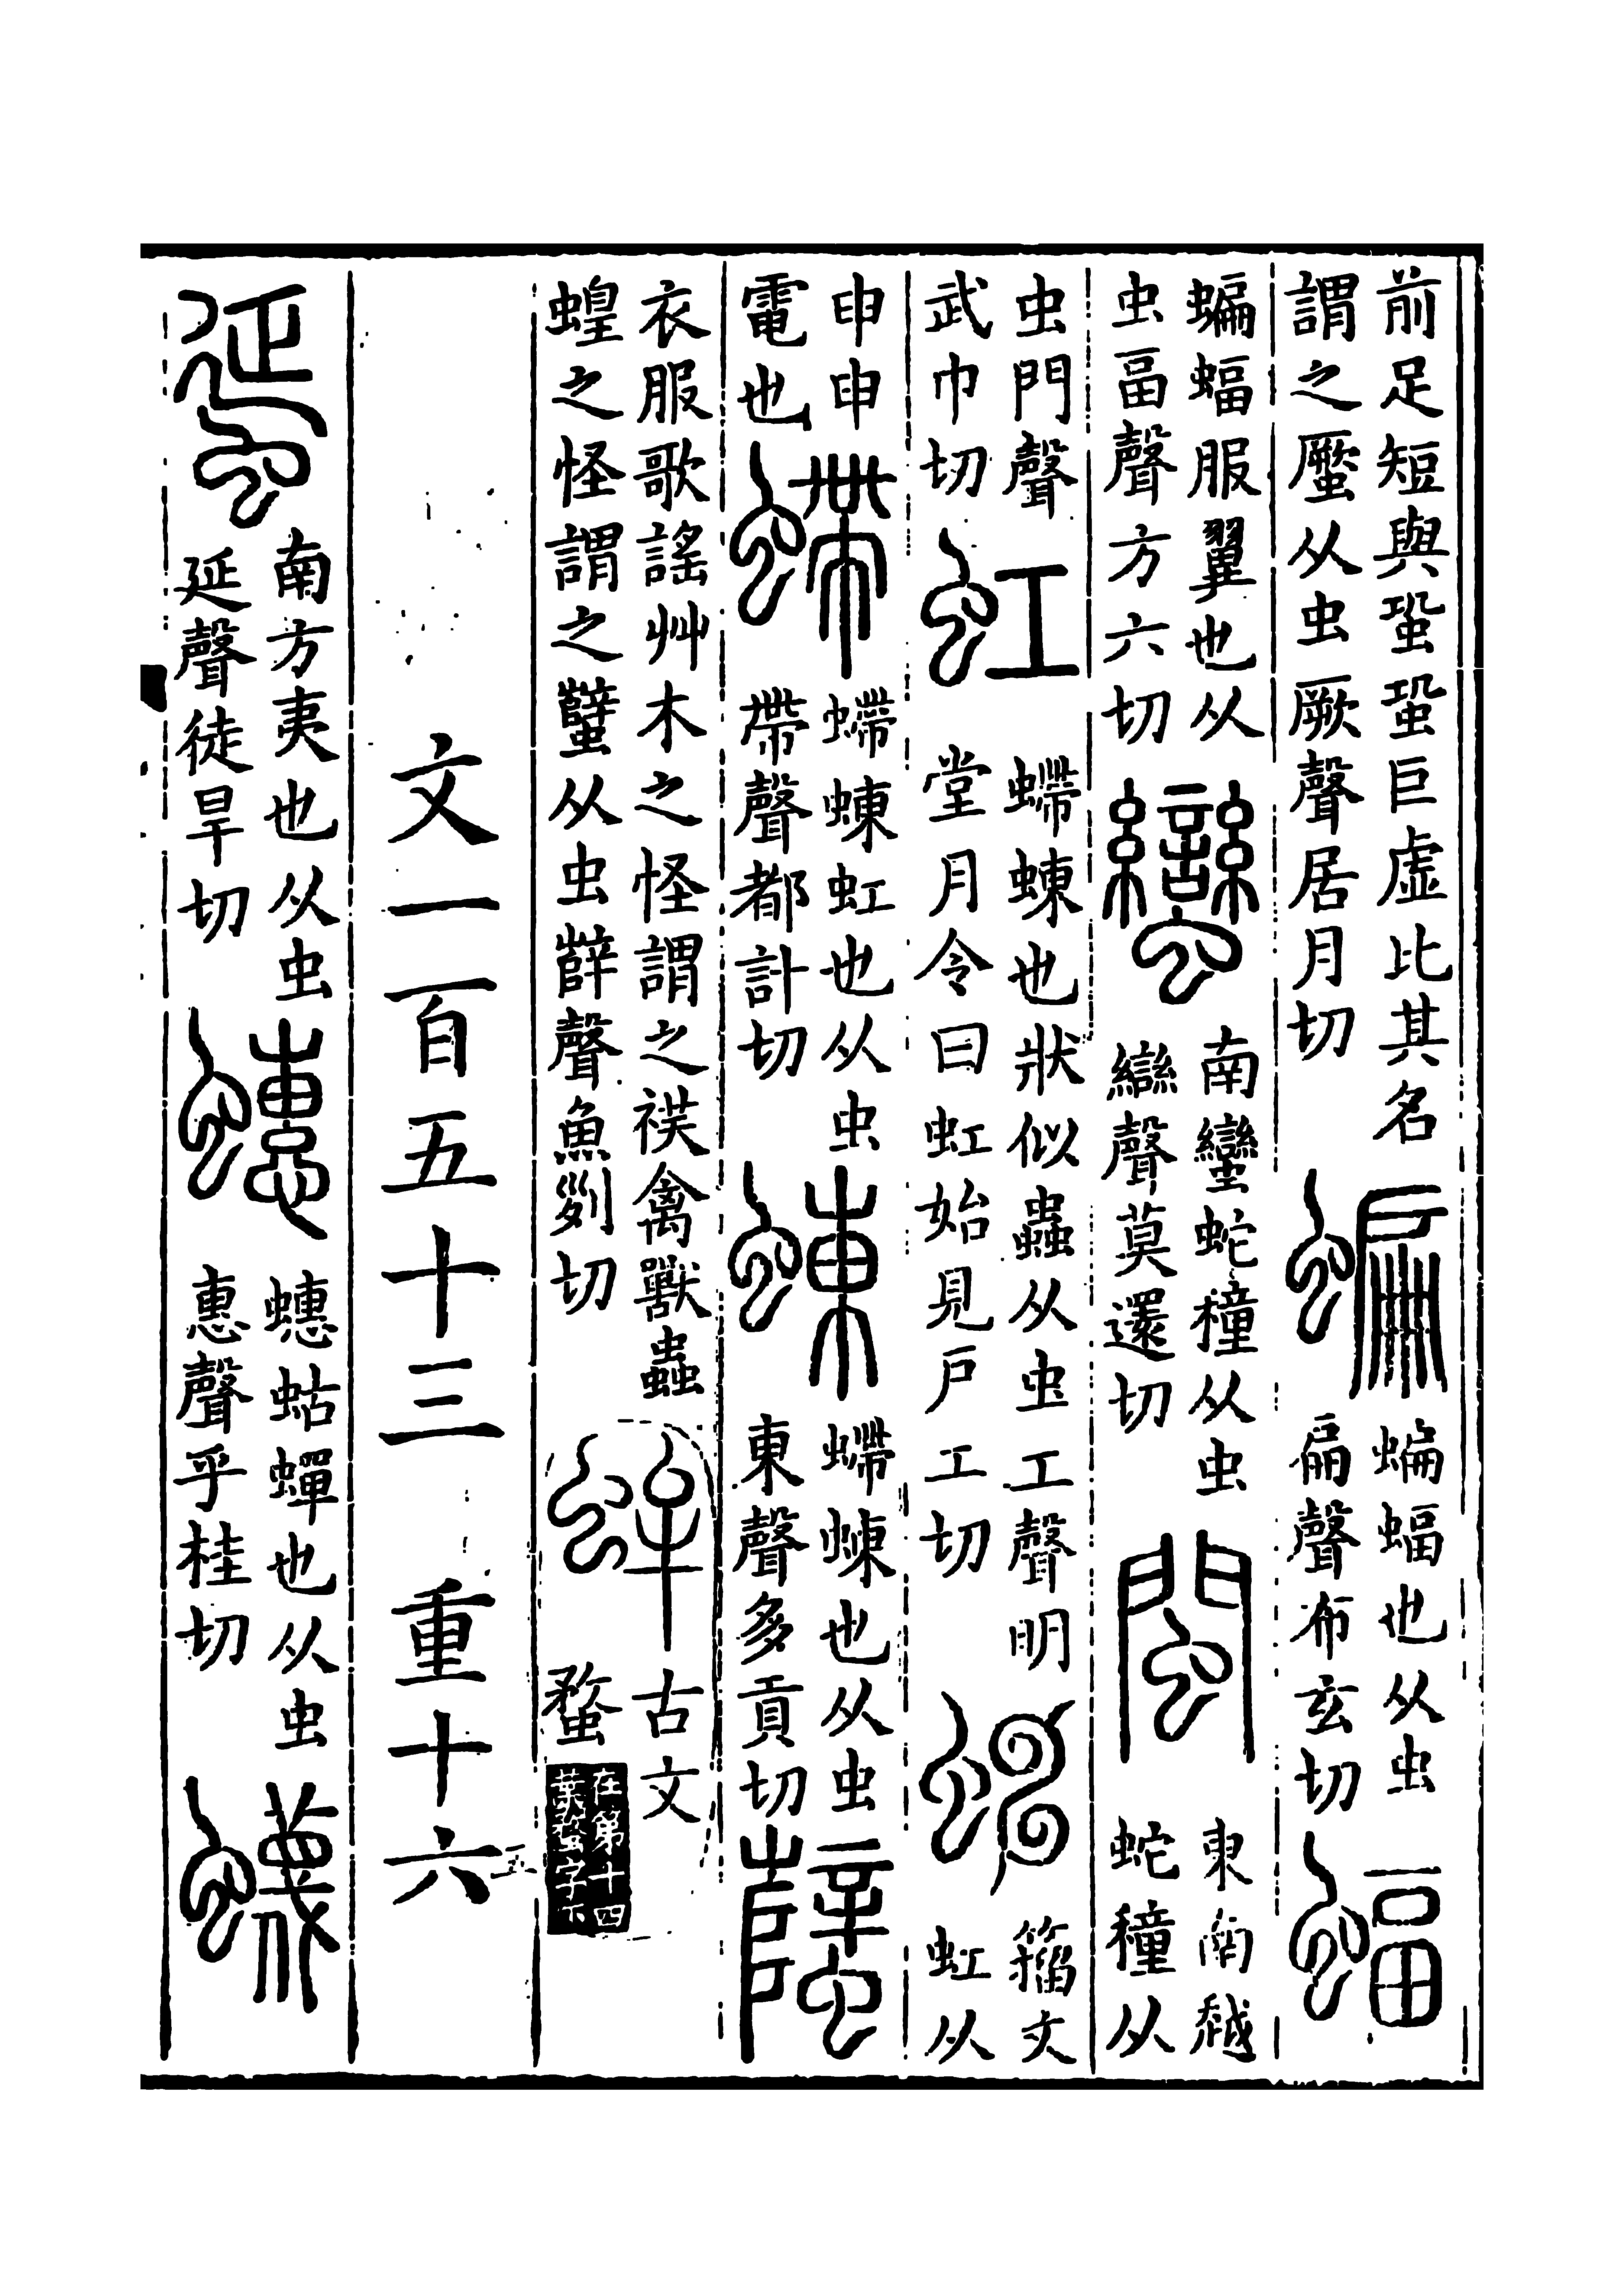 前足短與蛩蛩巨虛比其名謂之蟨从虫厥聲居月切 蝙 蝙蝠也从虫扁聲布玄切 蝠
蝙蝠服翼也从虫畐聲方六切 蠻 南蠻蛇穜从虫䜌聲莫還切 閩 東南越蛇穜从
虫門聲武巾切 虹 螮蝀也狀似蟲从虫工聲明堂月令曰虹始見戶工切 𧈫 籒文虹从
申申電也 螮 螮蝀虹也从虫帶聲都計切 蝀 螮蝀也从虫東聲多貢切 蠥
衣服歌謠艸木之怪謂之䄏禽獸蟲蝗之怪謂之蠥从虫辥聲魚列切 古文蝥 在第十四
文一百五十三 重十六
蜑 南方夷也从虫延聲徒旱切 蟪 蟪蛄蟬也从虫惠聲乎桂切 蠛